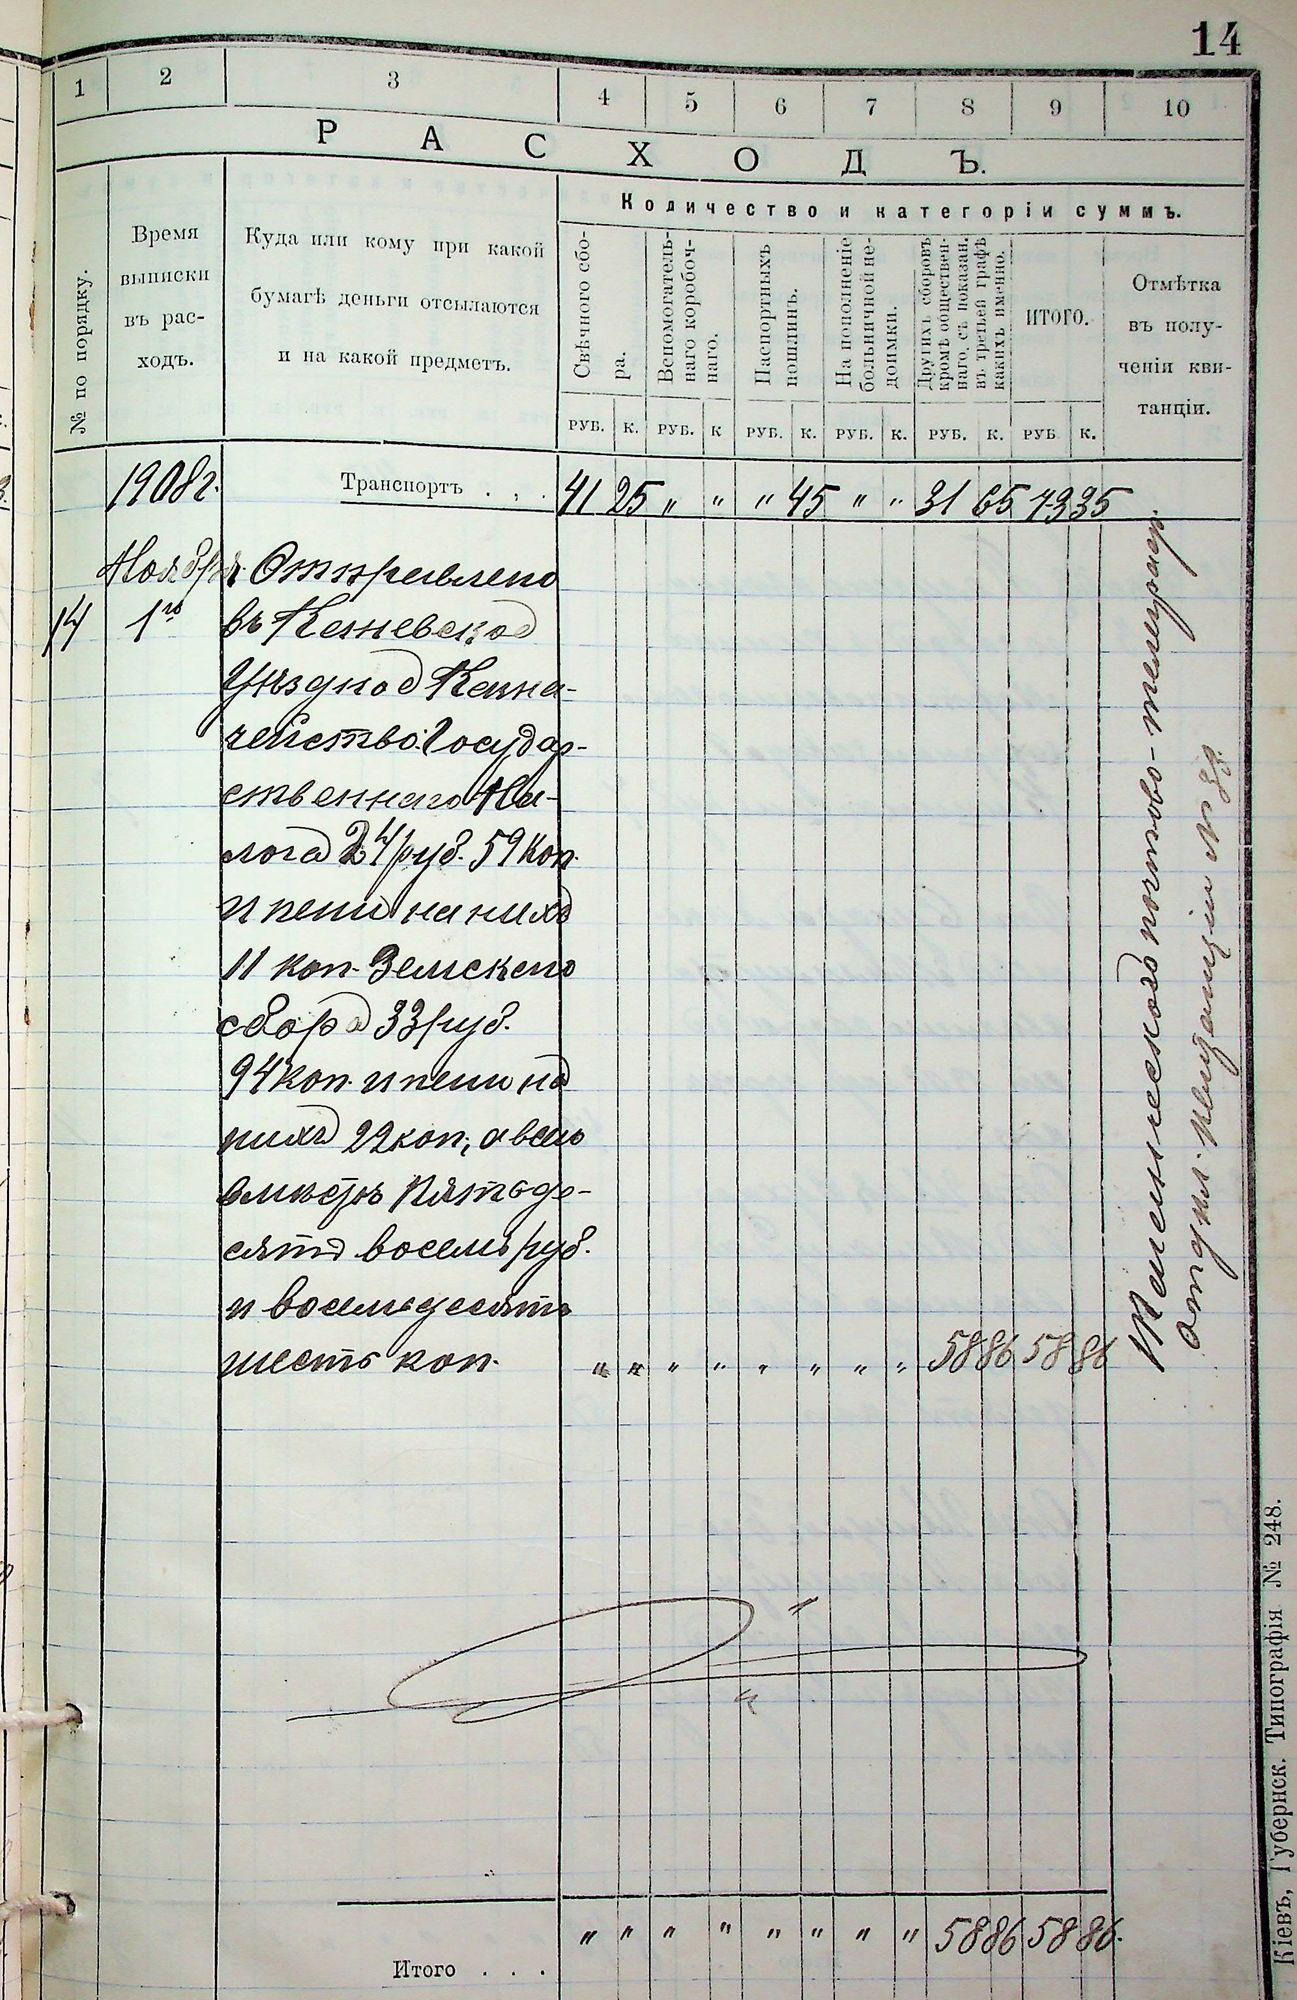 14
1 2 3 4 5 6 7 8 9 10
РАСХОДЪ.
№ по порядку.
Время
выписки
въ рас-
ходъ.
Куда или кому при какой
бумагѣ деньги отсылаются
и на какой предметъ.
Количество и категоріи суммъ.
Свѣчного сбо-
ра.
Вспомогатель-
наго коробоч-
наго.
Паспортныхъ
пошлинъ.
На пополненіе
больничной не-
доимки.
Другихъ сборовъ
кромѣ обществен-
наго, съ показан.
въ третьей графѣ
какихъ именно.
ИТОГО.
Отмѣтка
въ полу-
ченіи кви-
танціи.
РУБ. К. РУБ. К РУБ. К. РУБ. К. РУБ. К. РУБ К.
1908 г. Транспортъ . . . 41 25 „ „ „ 45 „ „ 31 65 73 35
Ноября Отправлено
14 1го въ Каневское
Уѣздное Казна-
чейство: Государ-
ственнаго На-
лога 24 руб. 59 коп.
и пени на нихъ
11 коп. Земскаго
сбора 33 руб.
94 коп. и пени на
нихъ 22 коп., а всего
вмѣстѣ пятьде-
сятъ восемь руб.
и восемьдесятъ
шесть коп. „ „ „ „ „ „ „ „ 58 86 58 86
почтово-телеграф.
отдѣл. квитанціи №
Итого . . . „ „ „ „ „ „ „ „ 58 86 58 86.
Кіевъ, Губернск. Типографія № 248.